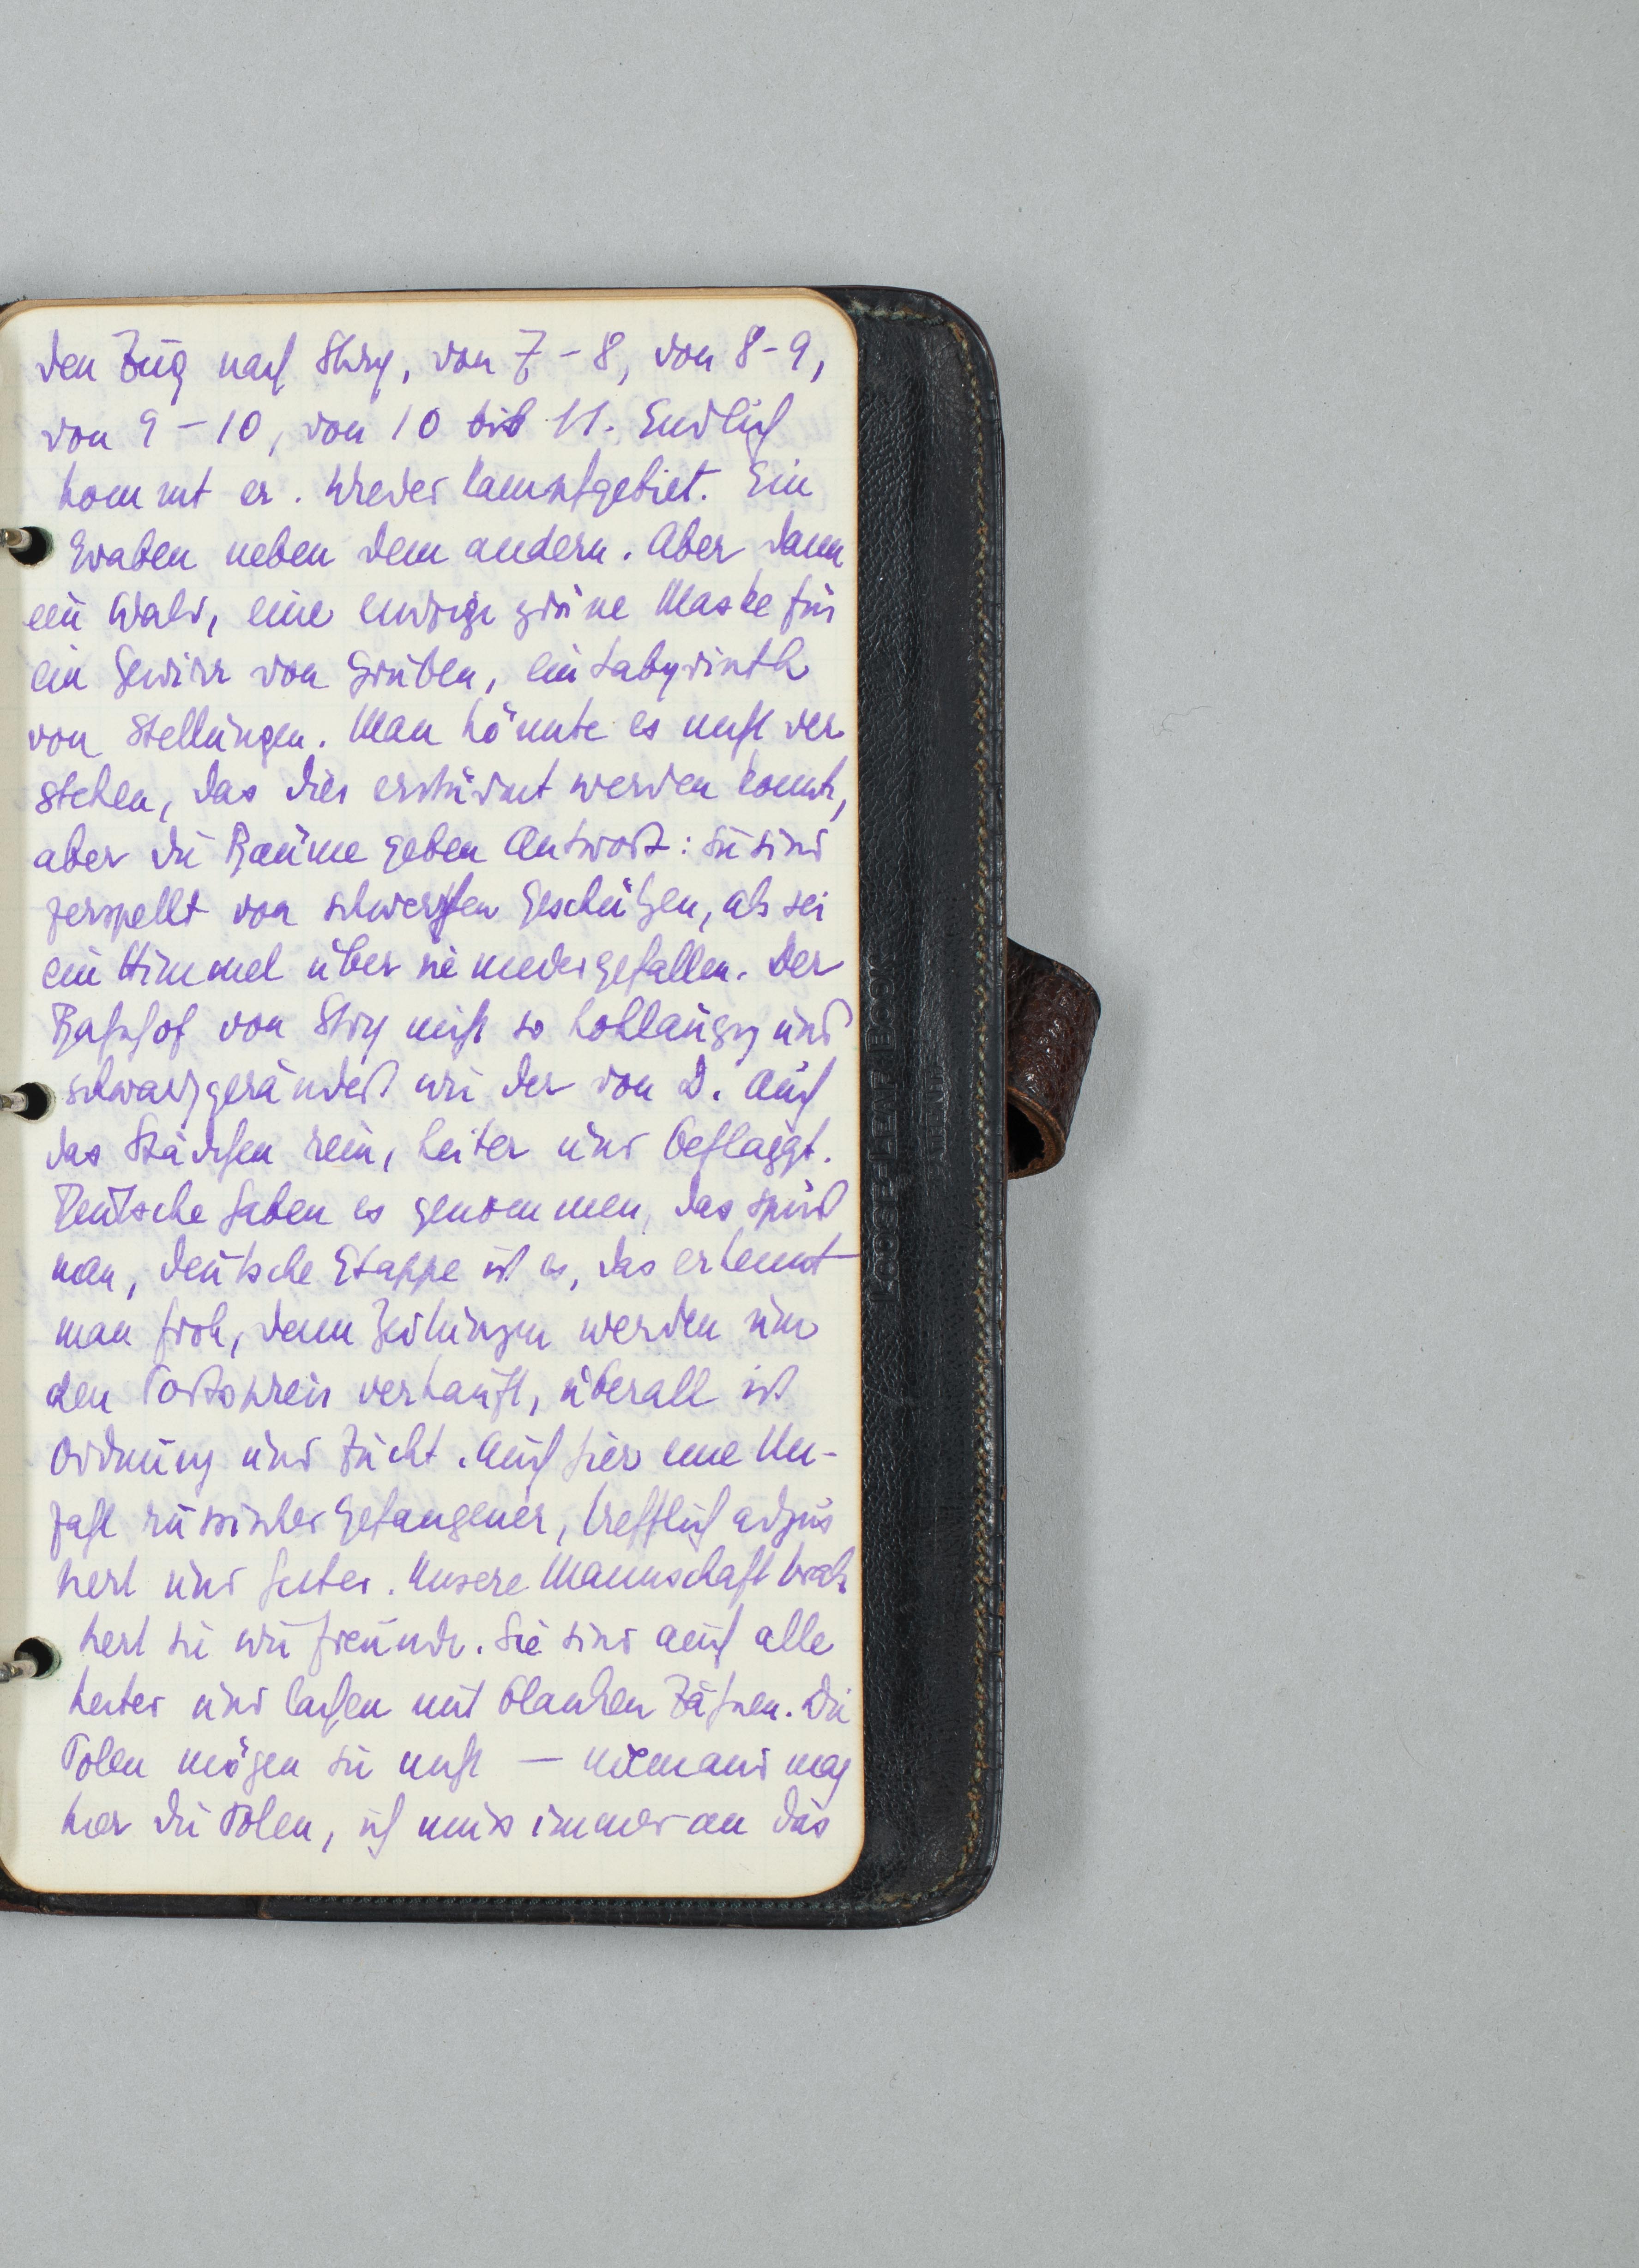 den Zug nach Stry, von 7-8, von 8-9,
von 9-10, von 10 bis 11. Endlich
kommt er. Wieder Kampfgebiet. Ein
Graben neben dem andern. Aber dann
ein Wald, eine einzige grüne Maske für
ein Gewirr von Gruben, ein Labyrinth
von Stellungen. Man könnte es nicht ver
stehen, das dies erstürmt werden konnte,
aber die Bäume geben Antwort: sie sind
zerspellt von schwersten Geschützen, als sei
ein Himmel über sie niedergefallen. Der
Bahnhof von Stry nicht so hohläugig und
schwarzgerändert wie der von D. Auch
das Städchen rein, heiter und beflaggt.
Deutsche haben es genommen, das spürt
man, deutsche Etappe ist es, das erkennt
man froh, denn Zeitungen werden um
den Portopreis verkauft, überall ist
Ordnung und Zucht. Auch hier eine Un-
zahl russischer Gefangener, trefflich adjus
tiert und heiter. Unsere Mannschaft trak
tiert sie wie Freunde. Sie sind auch alle
heiter und lachen mit blanken Zähnen. Die
Polen mögen sie nicht — niemand mag
hier die Polen, ich muss immer an das
LOOSE-LEAF BOOK